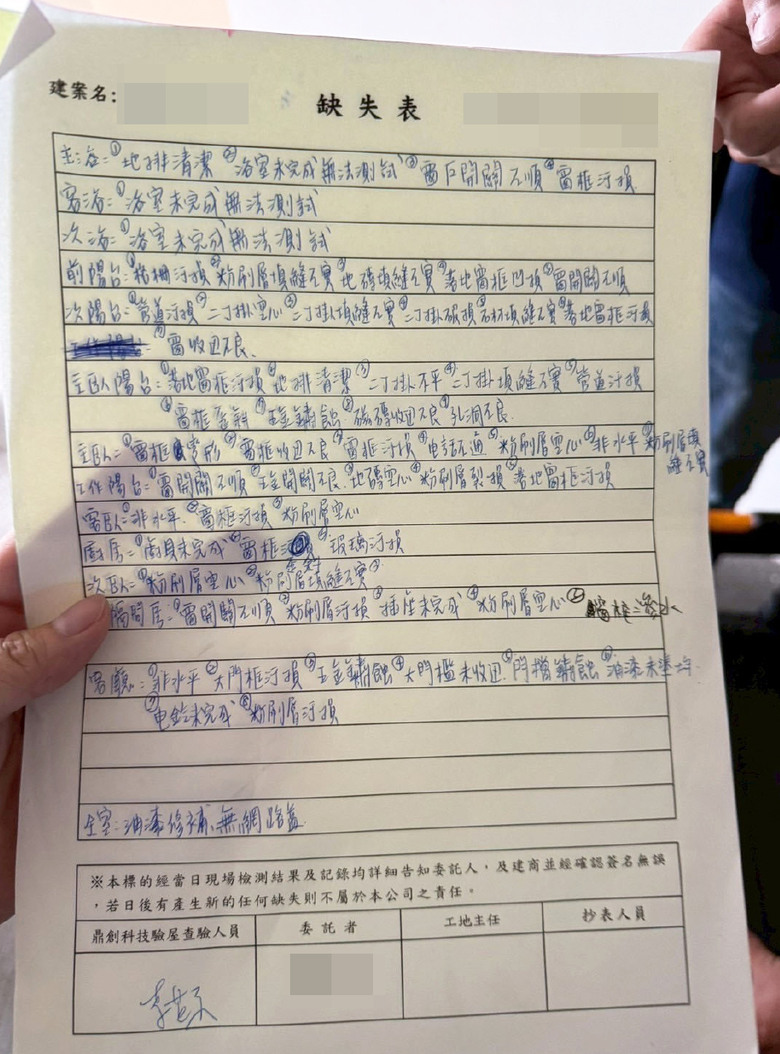 建案名:
缺失表
主浴:①地排清潔 ②浴室未完成無法測試 ③窗戶開關不順 ④窗框汙損
客浴:①浴室未完成無法測試
次浴:①浴室未完成無法測試
前陽台:①格柵汙損②粉刷層填縫不實③地磚填縫不實④落地窗框凹損⑤窗開關不順
次陽台:①管道汙損②二丁掛空心③二丁掛填縫不實④二丁掛破損⑤石材填縫不實⑥落地窗框汙損
⑦窗收边不良
主臥陽台:①落地窗框汙損②地排清潔③二丁掛不平④二丁掛填縫不實⑤管道汙損
⑥窗框歪斜⑦五金鏽蝕⑧磁磚收边不良⑨孔洞不良
主臥:①窗框變形②窗框收边不良③窗框汙損④電話不通⑤粉刷層空心⑥非水平⑦粉刷層填
縫不實
工作陽台:①窗開關不順②五金開關不良③地磚空心④粉刷層裂損⑤落地窗框汙損
客臥:①非水平②窗框汙損③粉刷層空心
廚房:①廚具未完成②窗框汙損③玻璃汙損
次臥:①粉刷層空心②粉刷層填縫不實
隔間房:①窗開關不順②粉刷層汙損③插座未完成④粉刷層空心⑤窗框滲水
客廳:①非水平②大門框汙損③五金鏽蝕④大門檻未收边⑤門擋鏽蝕⑥油漆未塗均
⑦電鈴未完成⑧粉刷層汙損
全室:油漆修補、無網路蓋
※本標的經當日現場檢測結果及記錄均詳細告知委託人,及建商並經確認簽名無誤
,若日後有產生新的任何缺失則不屬於本公司之責任。
鼎創科技驗屋查驗人員 委託者 工地主任 抄表人員